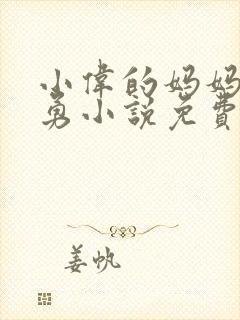 小偉的媽媽
勇小說免費
姜帆